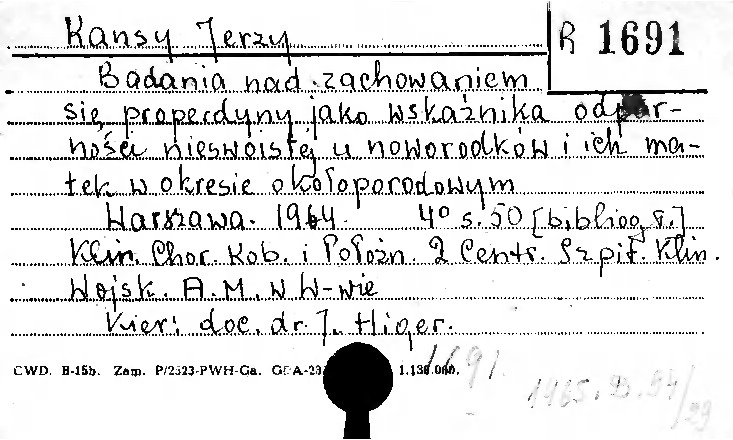 Kansy Jerzy
R 1691
Badania nad zachowaniem
się properdyny jako wskaźnika odpar-
ności nieswoistej u noworodków i ich ma-
tek w okresie okołoporodowym
Warszawa. 1964. 4° s. 50 [bibliogr.]
Klin. Chor. Kob. i Położn. 2 Centr. Szpit. Klin.
Wojsk. A.M. w W-wie
Kier: doc. dr. J. Higer.
CWD. B-15b. Zam. P/2523-PWH-Ga.
1691.